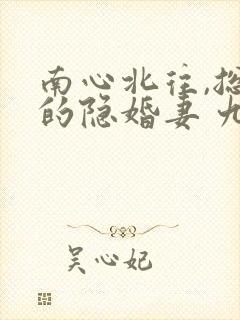 南心北往,总
的隐婚妻 九
吴心妃